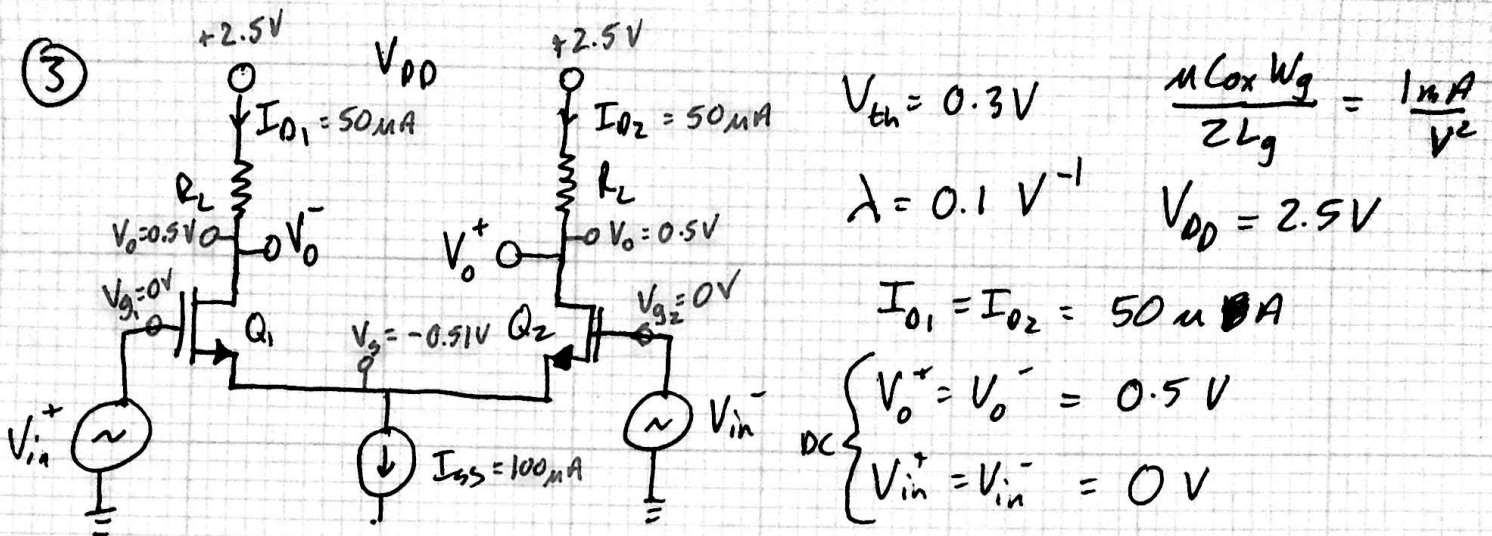 ③
+2.5V
V_DD
+2.5V
I_D1 = 50μA
I_D2 = 50μA
R_L
R_L
V_o=0.5V
V_o^-
V_o^+
V_o=0.5V
V_g1=0V
Q_1
V_s=-0.51V
Q_2
V_g2=0V
V_in^+
I_SS=100μA
V_in^-
V_th = 0.3V
μCox Wg / 2Lg = 1mA / V²
λ = 0.1 V^-1
V_DD = 2.5V
I_D1 = I_D2 = 50μA
DC
V_o^+ = V_o^- = 0.5 V
V_in^+ = V_in^- = 0 V